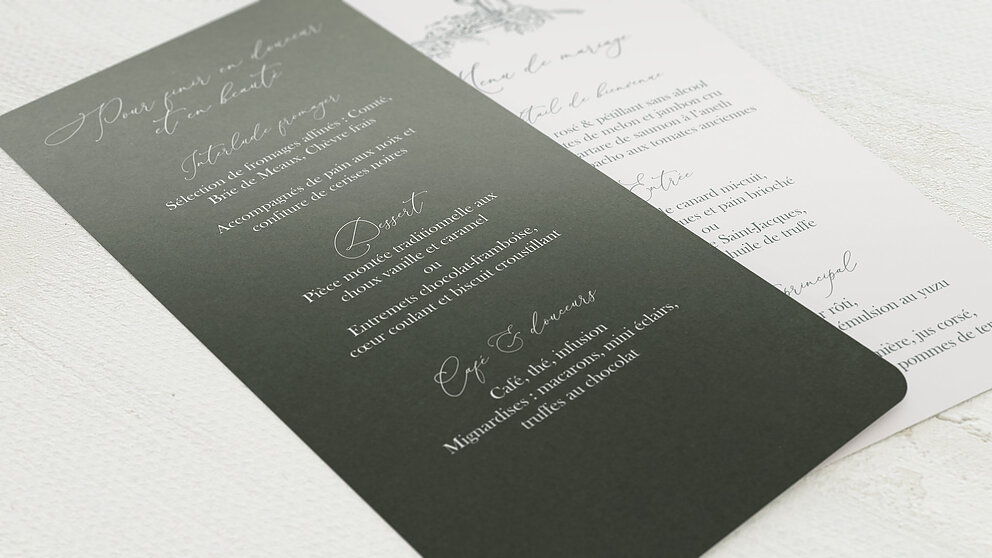 Pour finir en douceur
et en beauté
Interlude fromager
Sélection de fromages affinés : Comté,
Brie de Meaux, Chèvre frais
Accompagnés de pain aux noix et
confiture de cerises noires
Dessert
Pièce montée traditionnelle aux
choux vanille et caramel
ou
Entremets chocolat-framboise,
cœur coulant et biscuit croustillant
Café & douceurs
Café, thé, infusion
Mignardises : macarons, mini éclairs,
truffes au chocolat
Menu de mariage
de bienvenue
rosé & pétillant sans alcool
de melon et jambon cru
de saumon à l'aneth
aux tomates anciennes
Entrée
canard mi-cuit,
et pain brioché
ou
Saint-Jacques,
huile de truffe
principal
rôti,
émulsion au yuzu
jus corsé,
pommes de